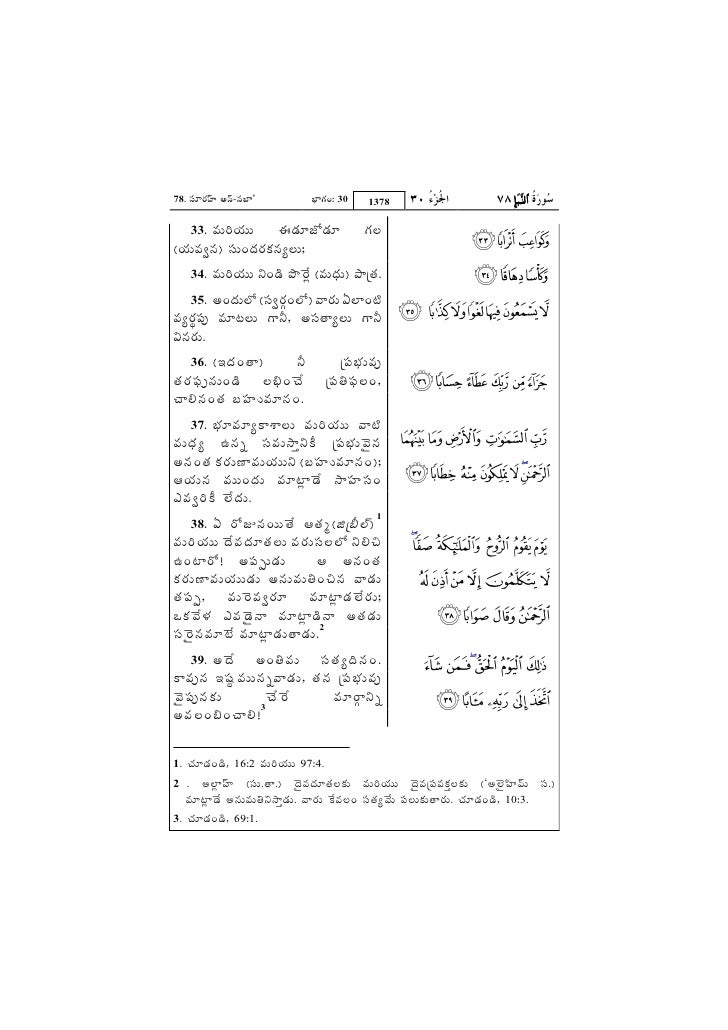 78. సూరహ్ అన్-నబా' భాగం: 30 1378 الجُزْءُ ٣٠ سُورَةُ النَّبَإِ ٧٨
33. మరియు ఈడూజోడూ గల
(యవ్వన) సుందరకన్యలు;
وَكَوَاعِبَ أَتْرَابًا ﴿٣٣﴾
34. మరియు నిండి పొర్లే (మధు) పాత్ర.
وَكَأْسًا دِهَاقًا ﴿٣٤﴾
35. అందులో (స్వర్గంలో) వారు ఏలాంటి
వ్యర్థపు మాటలు గానీ, అసత్యాలు గానీ
వినరు.
لَّا يَسْمَعُونَ فِيهَا لَغْوًا وَلَا كِذَّٰبًا ﴿٣٥﴾
36. (ఇదంతా) నీ ప్రభువు
తరఫునుండి లభించే ప్రతిఫలం,
చాలినంత బహుమానం.
جَزَآءً مِّن رَّبِّكَ عَطَآءً حِسَابًا ﴿٣٦﴾
37. భూమ్యాకాశాలు మరియు వాటి
మధ్య ఉన్న సమస్తానికీ ప్రభువైన
అనంత కరుణామయుని (బహుమానం);
ఆయన ముందు మాట్లాడే సాహసం
ఎవ్వరికీ లేదు.
رَّبِّ ٱلسَّمَٰوَٰتِ وَٱلْأَرْضِ وَمَا بَيْنَهُمَا
ٱلرَّحْمَٰنِ ۖ لَا يَمْلِكُونَ مِنْهُ خِطَابًا ﴿٣٧﴾
38. ఏ రోజునయితే ఆత్మ (జిబ్రీల్) 1
మరియు దేవదూతలు వరుసలలో నిలిచి
ఉంటారో! అప్పుడు ఆ అనంత
కరుణామయుడు అనుమతించిన వాడు
తప్ప, మరెవ్వరూ మాట్లాడలేరు;
ఒకవేళ ఎవడైనా మాట్లాడినా అతడు
సరైనమాటే మాట్లాడుతాడు.2
يَوْمَ يَقُومُ ٱلرُّوحُ وَٱلْمَلَٰٓئِكَةُ صَفًّا ۖ
لَّا يَتَكَلَّمُونَ إِلَّا مَنْ أَذِنَ لَهُ
ٱلرَّحْمَٰنُ وَقَالَ صَوَابًا ﴿٣٨﴾
39. అదే అంతిమ సత్యదినం.
కావున ఇష్టమున్నవాడు, తన ప్రభువు
వైపునకు చేరే మార్గాన్ని
అవలంబించాలి!3
ذَٰلِكَ ٱلْيَوْمُ ٱلْحَقُّ ۖ فَمَن شَآءَ
ٱتَّخَذَ إِلَىٰ رَبِّهِۦ مَـَٔابًا ﴿٣٩﴾
1. చూడండి, 16:2 మరియు 97:4.
2 . అల్లాహ్ (సు.తా.) దైవదూతలకు మరియు దైవప్రవక్తలకు ('అలైహిమ్ స.)
మాట్లాడే అనుమతినిస్తాడు. వారు కేవలం సత్యమే పలుకుతారు. చూడండి, 10:3.
3. చూడండి, 69:1.